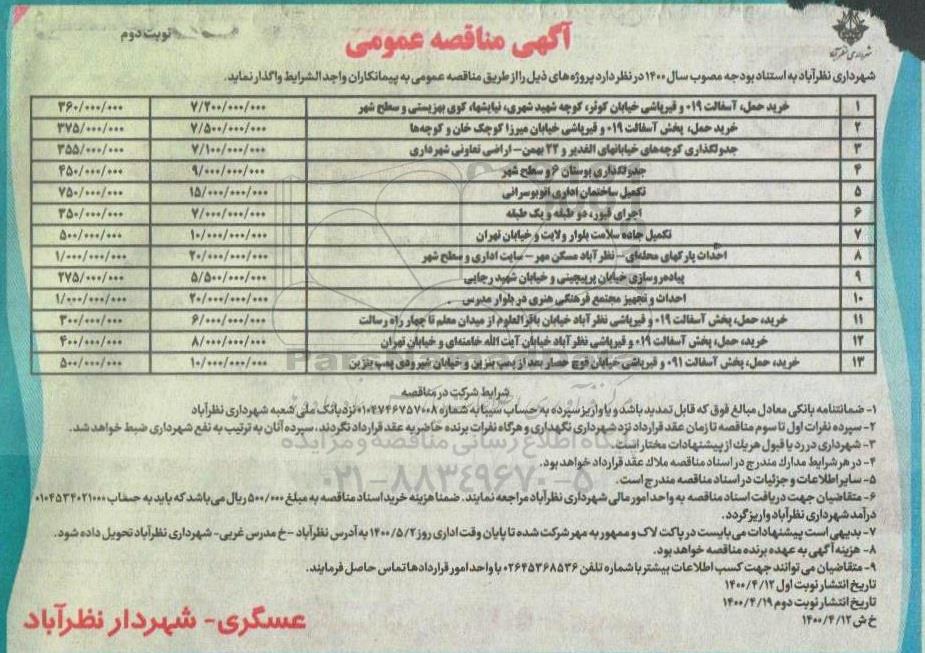 شهرداری نظرآباد
آگهی مناقصه عمومی
نوبت دوم
شهرداری نظرآباد به استناد بودجه مصوب سال ۱۴۰۰ در نظر دارد پروژه های ذیل را از طریق مناقصه عمومی به پیمانکاران واجد الشرایط واگذار نماید.
۱ خرید حمل، آسفالت ۰۱۹ و قیرپاشی خیابان کوثر، کوچه شهید شهری، نیایشها، کوی بهزیستی و سطح شهر ۷/۲۰۰/۰۰۰/۰۰۰ ۳۶۰/۰۰۰/۰۰۰
۲ خرید حمل، پخش آسفالت ۰۱۹ و قیرپاشی خیابان میرزا کوچک خان و کوچه‌ها ۷/۵۰۰/۰۰۰/۰۰۰ ۳۷۵/۰۰۰/۰۰۰
۳ جدولگذاری کوچه‌های خیابانهای الغدیر و ۲۲ بهمن – اراضی تعاونی شهرداری ۷/۱۰۰/۰۰۰/۰۰۰ ۳۵۵/۰۰۰/۰۰۰
۴ جدولگذاری بوستان ۶ و سطح شهر ۹/۰۰۰/۰۰۰/۰۰۰ ۴۵۰/۰۰۰/۰۰۰
۵ تکمیل ساختمان اداری اتوبوسرانی ۱۵/۰۰۰/۰۰۰/۰۰۰ ۷۵۰/۰۰۰/۰۰۰
۶ اجرای قبور، دو طبقه و یک طبقه ۷/۰۰۰/۰۰۰/۰۰۰ ۳۵۰/۰۰۰/۰۰۰
۷ تکمیل جاده سلامت بلوار ولایت و خیابان تهران ۱۰/۰۰۰/۰۰۰/۰۰۰ ۵۰۰/۰۰۰/۰۰۰
۸ احداث پارکهای محله‌ای – نظرآباد مسکن مهر – سایت اداری و سطح شهر ۲۰/۰۰۰/۰۰۰/۰۰۰ ۱/۰۰۰/۰۰۰/۰۰۰
۹ پیاده‌روسازی خیابان پرپیچینی و خیابان شهید رجایی ۵/۵۰۰/۰۰۰/۰۰۰ ۲۷۵/۰۰۰/۰۰۰
۱۰ احداث و تجهیز مجتمع فرهنگی هنری در بلوار مدرس ۲۰/۰۰۰/۰۰۰/۰۰۰ ۱/۰۰۰/۰۰۰/۰۰۰
۱۱ خرید، حمل، پخش آسفالت ۰۱۹ و قیرپاشی نظرآباد خیابان باقرالعلوم از میدان معلم تا چهار راه رسالت ۶/۰۰۰/۰۰۰/۰۰۰ ۳۰۰/۰۰۰/۰۰۰
۱۲ خرید، حمل، پخش آسفالت ۰۱۹ و قیرپاشی نظرآباد خیابان آیت الله خامنه‌ای و خیابان تهران ۸/۰۰۰/۰۰۰/۰۰۰ ۴۰۰/۰۰۰/۰۰۰
۱۳ خرید، حمل، پخش آسفالت ۰۹۱ و قیرپاشی خیابان قوچ حصار بعد از پمپ بنزین و خیابان شیرودی پمپ بنزین ۱۰/۰۰۰/۰۰۰/۰۰۰ ۵۰۰/۰۰۰/۰۰۰
شرایط شرکت در مناقصه
۱- ضمانتنامه بانکی معادل مبالغ فوق که قابل تمدید باشد و یا واریز سپرده به حساب سیبا به شماره ۰۱۰۴۷۴۶۷۵۷۰۰۸ نزد بانک ملی شعبه شهرداری نظرآباد
۲- سپرده نفرات اول تا سوم مناقصه تا زمان عقد قرارداد نزد شهرداری نگهداری و هرگاه نفرات برنده حاضر به عقد قرارداد نگردند، سپرده آنان به ترتیب به نفع شهرداری ضبط خواهد شد.
۳- شهرداری در رد یا قبول هر یک از پیشنهادات مختار است.
۴- در هر شرایط مدارک مندرج در اسناد مناقصه ملاک عقد قرارداد خواهد بود.
۵- سایر اطلاعات و جزئیات در اسناد مناقصه مندرج است.
۶- متقاضیان جهت دریافت اسناد مناقصه به واحد امور مالی شهرداری نظرآباد مراجعه نمایند. ضمنا هزینه خرید اسناد مناقصه به مبلغ ۵۰۰/۰۰۰ ریال می باشد که باید به حساب ۰۱۰۴۵۳۴۰۲۱۰۰۰
درآمد شهرداری نظرآباد واریز گردد.
۷- بدیهی است پیشنهادات می بایست در پاکت لاک و ممهور به مهر شرکت شده تا پایان وقت اداری روز ۱۴۰۰/۵/۲ به آدرس نظرآباد – خ مدرس غربی- شهرداری نظرآباد تحویل داده شود.
۸- هزینه آگهی به عهده برنده مناقصه خواهد بود.
۹- متقاضیان می توانند جهت کسب اطلاعات بیشتر با شماره تلفن ۰۲۶۴۵۳۶۸۵۳۶ با واحد امور قراردادها تماس حاصل فرمایند.
تاریخ انتشار نوبت اول ۱۴۰۰/۴/۱۲
تاریخ انتشار نوبت دوم ۱۴۰۰/۴/۱۹
خ ش ۱۴۰۰/۴/۱۲
عسگری- شهردار نظرآباد
پایگاه اطلاع رسانی مناقصه و مزایده
۰۲۱-۸۸۳۴۹۶۷۰-۵